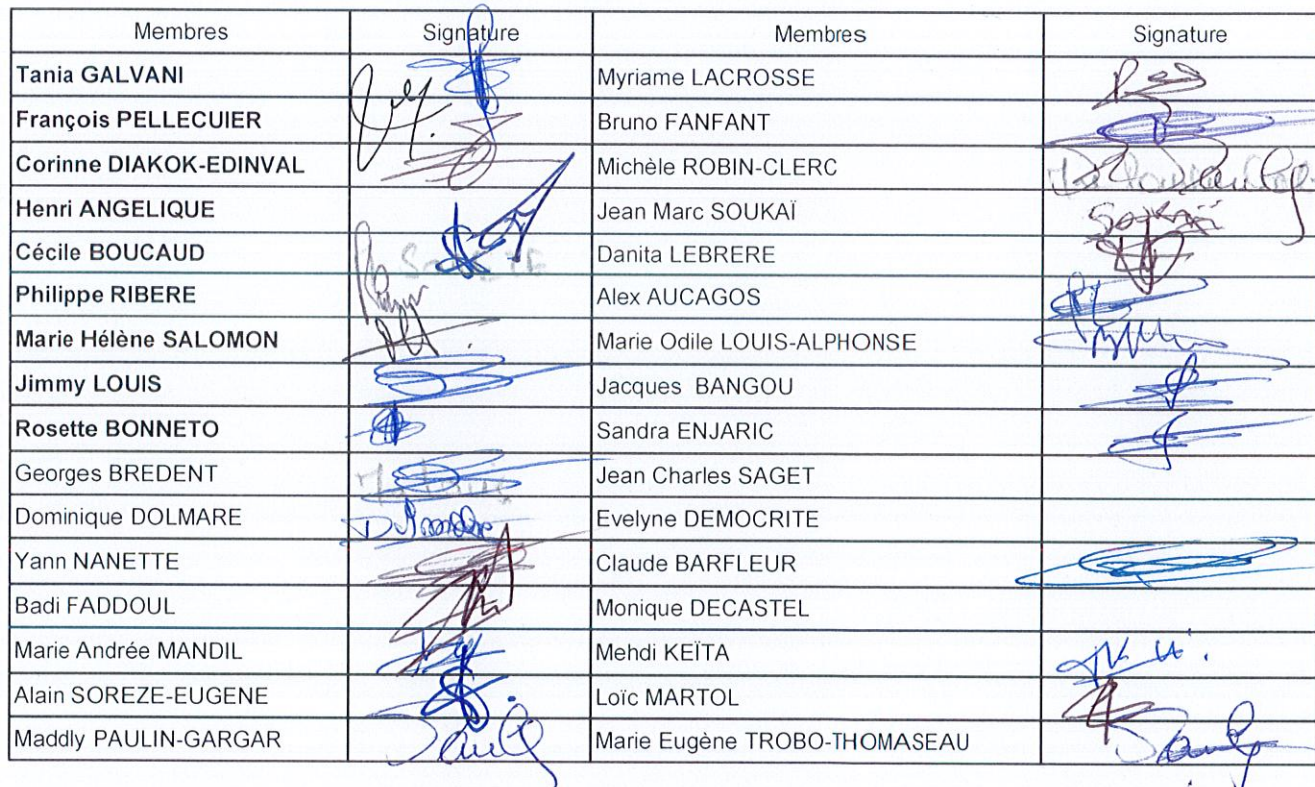 Membres Signature Membres Signature
Tania GALVANI Myriame LACROSSE
François PELLECUIER Bruno FANFANT
Corinne DIAKOK-EDINVAL Michèle ROBIN-CLERC
Henri ANGELIQUE Jean Marc SOUKAÏ Soukaï
Cécile BOUCAUD Danita LEBRERE
Philippe RIBERE Alex AUCAGOS
Marie Hélène SALOMON Marie Odile LOUIS-ALPHONSE
Jimmy LOUIS Jacques BANGOU
Rosette BONNETO Sandra ENJARIC
Georges BREDENT Jean Charles SAGET
Dominique DOLMARE Evelyne DEMOCRITE
Yann NANETTE Claude BARFLEUR
Badi FADDOUL Monique DECASTEL
Marie Andrée MANDIL Mehdi KEÏTA
Alain SOREZE-EUGENE Loïc MARTOL
Maddly PAULIN-GARGAR Marie Eugène TROBO-THOMASEAU